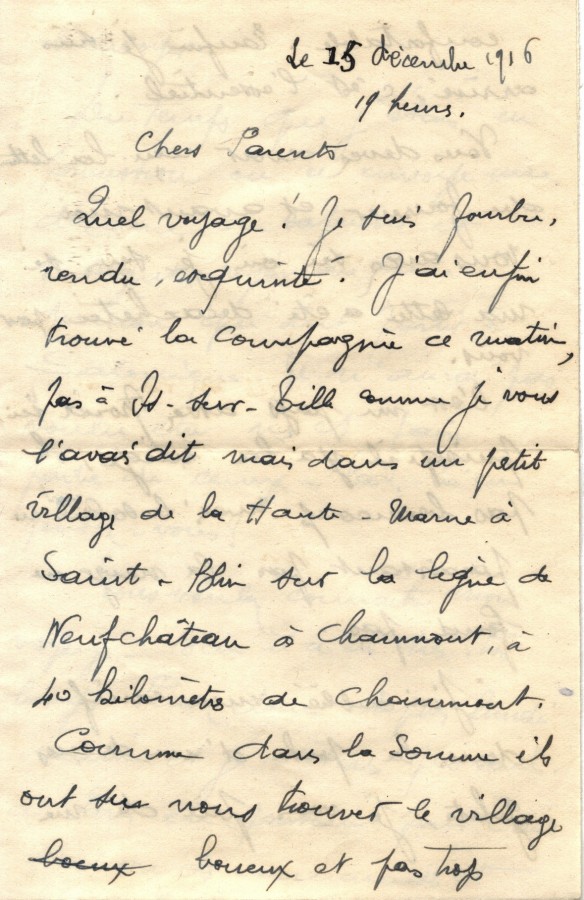 Le 15 décembre 1916
19 heures.
Chers Parents
Quel voyage ! Je suis fourbu,
rendu, esquinté. J'ai enfin
trouvé la compagnie ce matin,
pas à Is-sur-Tille comme je vous
l'avais dit mais dans un petit
village de la Haute-Marne à
Saint-Blin sur la ligne de
Neufchâteau à Chaumont, à
40 kilomètres de Chaumont.
Comme dans la Somme ils
ont su nous trouver le village
boeux boueux et pas trop